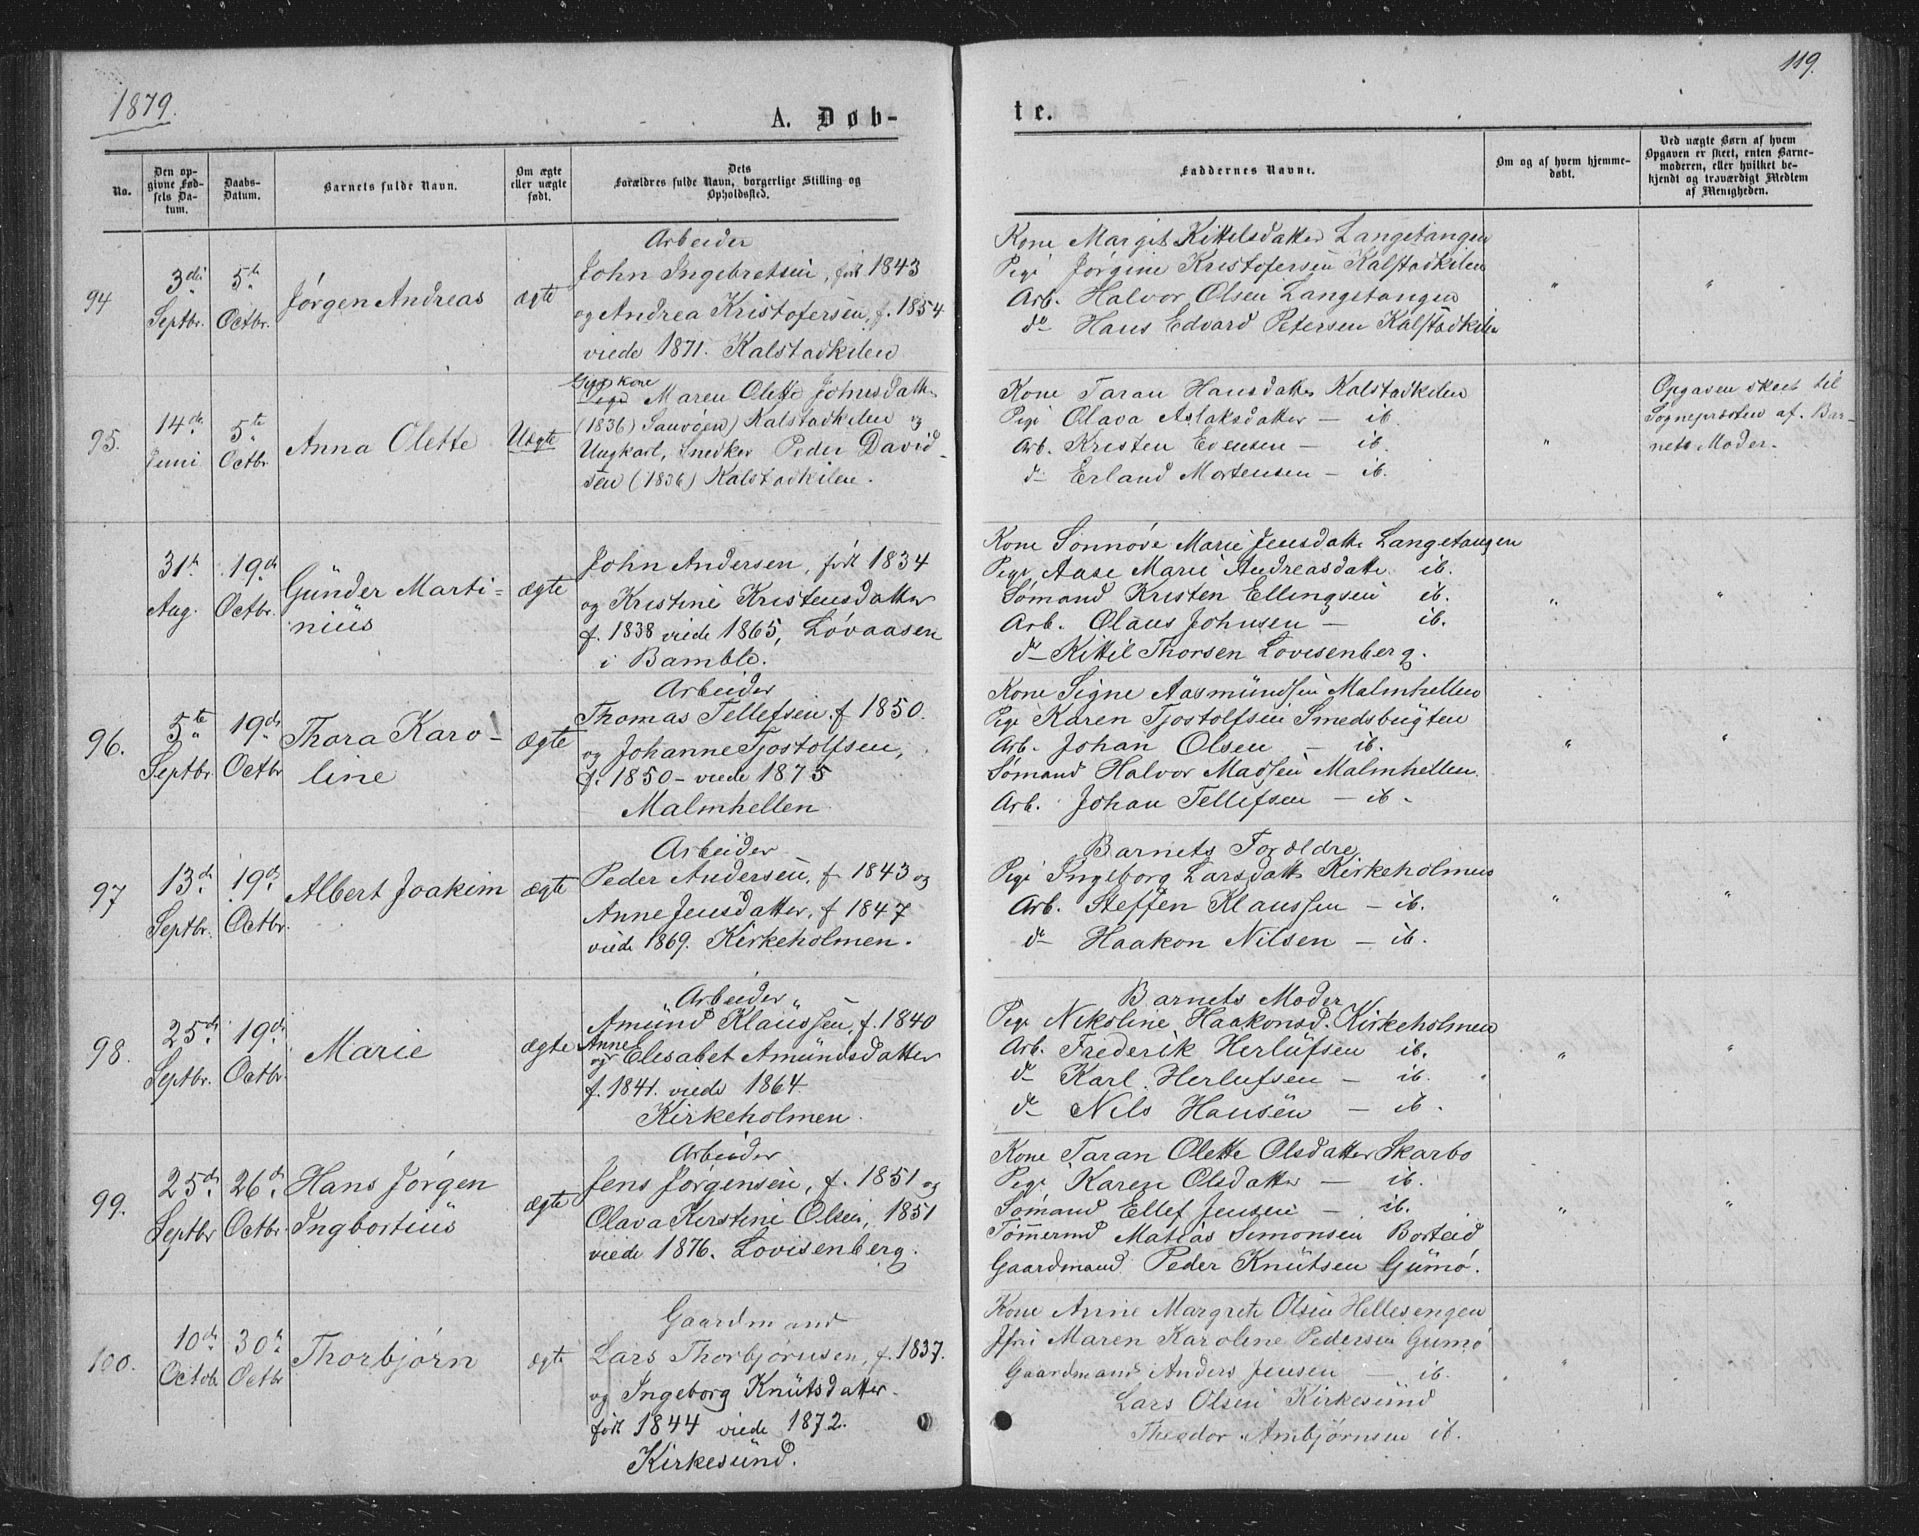 1879.
A. Døb-
No.
Den op-
givne Fød-
sels Da-
tum.
Daabs-
Datum.
Barnets fulde Navn.
Om ægte
eller uægte
født.
Dets
Forældres fulde Navn, borgerlige Stilling og
Opholdssted.
94
3die
Septbr.
5te
Octbr.
Jørgen Andreas
ægte
Arbeider
John Ingebretsen, født 1843
og Andrea Kristofersen, f. 1854
viede 1871. Kalstadkilen
95.
14de
Juni
5te
Octbr
Anna Olette
Uægte
Pige Maren Olette Johnsdatter
(1836) Kalstadkilen og
Ungkarl, Snedker Peder David-
sen (1836) Kalstadkilen.
31te
Aug.
19de
Octbr.
Günder Marti-
niüs
ægte
John Andersen, født 1834
og Kristine Kristensdatter
f. 1838 viede 1865, Løvaasen
i Bamble.
96.
5te
Septbr.
19de
Octbr
Thora Karo-
line
ægte
Arbeider
Thomas Tellefsen f 1850.
og Johanne Tjostolfsen,
f. 1850 - viede 1875
Malmhellen
97
13de
Septbr.
19de
Octbr.
Albert Joakim
ægte
Arbeider
Peder Andersen, f 1843 og
Anne Jensdatter, f 1847
viede 1869. Kirkeholmen.
98.
25de
Septbr.
19de
Octbr.
Marie
ægte
Arbeider
Amünd Klaussen, f. 1840
Anne
og Elisabet Amündsdatter
f. 1841. viede 1864.
Kirkeholmen.
99.
25de
Septbr
26de
Octbr.
Hans Jørgen
Ingbortiüs
ægte
Arbeider
Jens Jørgensen, f. 1851 og
Olava Kirstine Olsen, 1851
viede 1876. Lovisenberg.
100.
10de
Octob.
30te
Octbr
Thorbjørn
ægte
Gaardmand
Lars Thorbjørnsen, f. 1837.
og Ingeborg Knütsdatter
født 1844 viede 1872.
Kirkesünd.
119.
te.
Faddernes Navne.
Om og af hvem hjemme-
døbt.
Ved uægte Børn af hvem
Opgaven er skeet, enten Barne-
moderen, eller hvilket be-
kjendt og troværdigt Medlem
af Menigheden.
Kone Margit Kittelsdatter Langetangen
Pige Jørgine Kristofersen Kalstadkilen
Arb. Halvor Olsen Langetangen
do Hans Edvard Petersen Kalstadkilen
Kone Taran Hansdatter Kalstadkilen
Pige Olava Aslaksdatter - ib.
Arb. Kristen Evensen - ib.
d - Erland Mortensen - ib.
Opgaven skeet til
Sognepresten af Bar-
nets Moder.
Kone Sønnøve Marie Jensdatter Langetangen
Pige Aase Marie Andreasdatter ib.
Sømand Kristen Ellingsen ib.
Arb. Olaus Johnsen - ib.
do - Kittil Thorsen Lovisenberg.
Kone Signe Aasmündsen Malmhellen
Pige Karen Tjostolfsen Smedsbugten
Arb. Johan Olsen - ib.
Sømand Halvor Madsen Malmhellen.
Arb. Johan Tellefsen - ib.
Barnets Forældre
Pige Ingeborg Larsdatter Kirkeholmen
Arb. Steffen Klaussen - ib.
do Haakon Nilsen - ib.
Barnets Moder
Pige Nikoline Haakonsd. Kirkeholmen
Arb. Frederik Herlüfsen ib.
do Karl Herlufsen - ib.
do Nils Hansen - ib.
Kone Taran Olette Olsdatter Skarbo
Pige Karen Olsdatter - ib.
Sømand Ellef Jensen - ib.
Tømmermd Matias Simonsen Borteid
Gaardmand Peder Knütsen Gümø.
Kone Anne Margrete Olsen Hellesengen
Jfri Maren Karoline Pedersen Gumø
Gaardmand Anders Jensen - ib.
Lars Olsen Kirkesünd
Theodor Ambjørnsen ib.